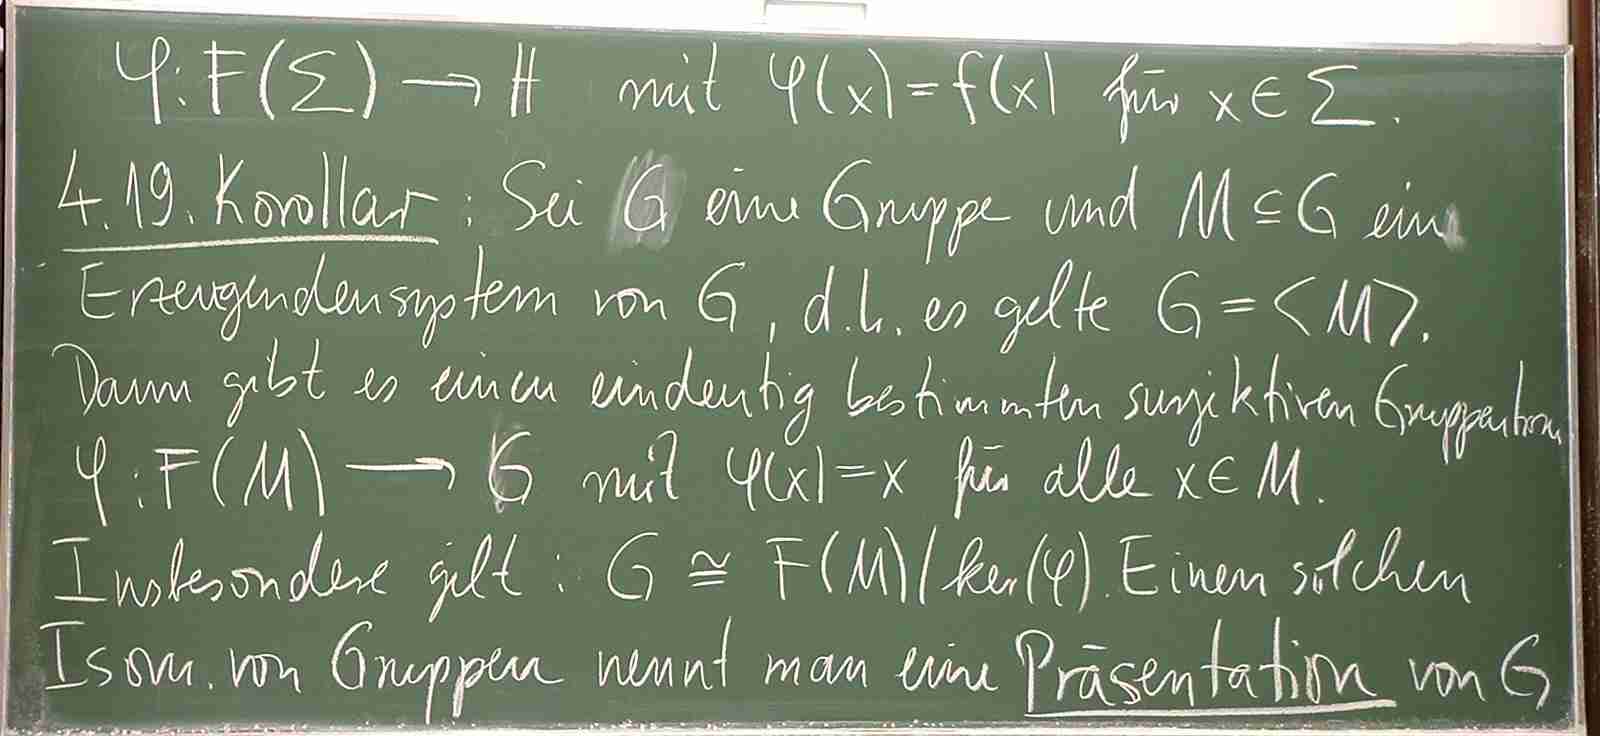 φ: F(Σ) → H mit φ(x) = f(x) für x ∈ Σ.
4.19. Korollar: Sei G eine Gruppe und M ⊆ G ein
Erzeugendensystem von G, d.h. es gelte G = <M>.
Dann gibt es einen eindeutig bestimmten surjektiven Gruppenhom
φ: F(M) → G mit φ(x) = x für alle x ∈ M.
Insbesondere gilt: G ≅ F(M)/ker(φ). Einen solchen
Isom. von Gruppen nennt man eine Präsentation von G